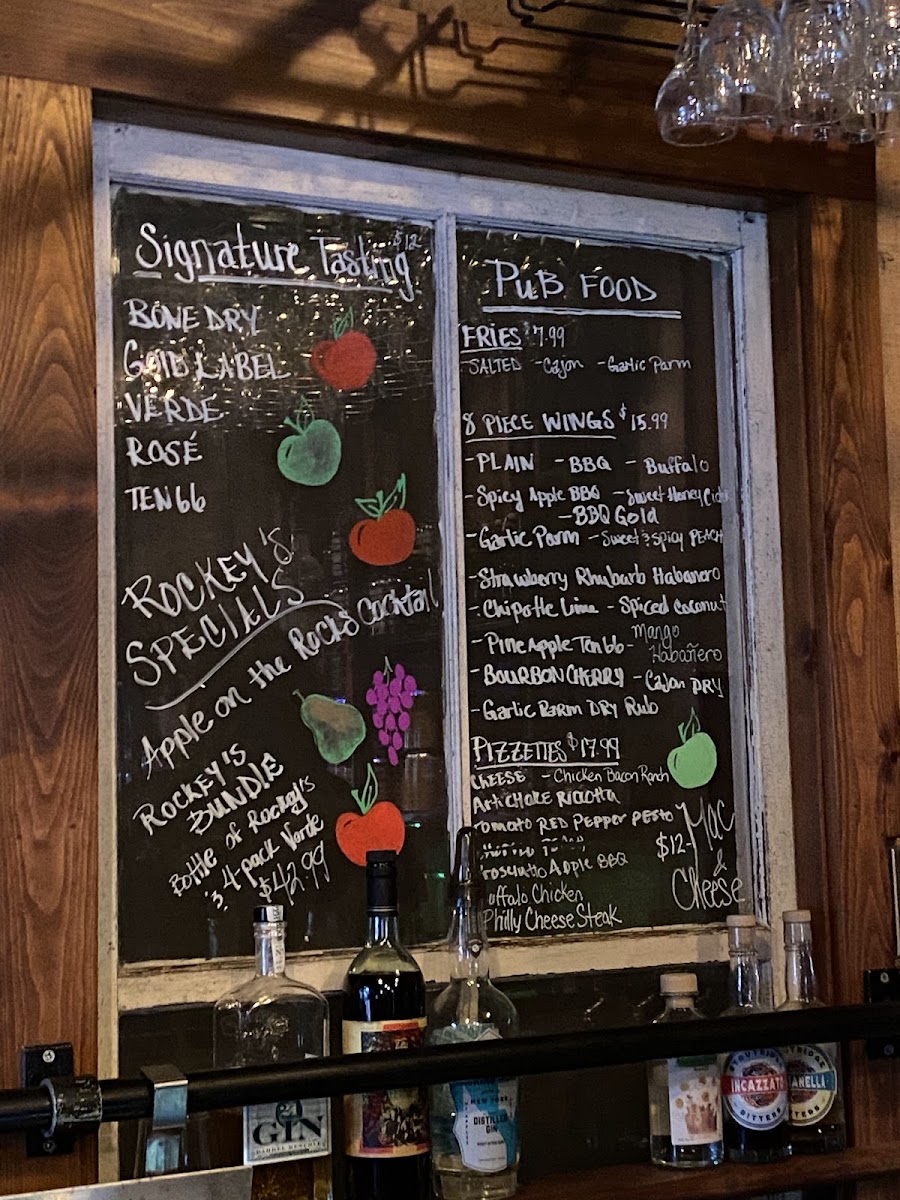 Signature Tasting $12
BONE DRY
GOLD LABEL
VERDE
ROSÉ
TEN66
ROCKEY'S
SPECIALS
Apple on the Rocks Cocktail
ROCKEY'S
BUNDLE
Bottle of Rockey's
4 pack Verde
$42.99
PUB FOOD
FRIES 7.99
-SALTED -Cajon -Garlic Parm
8 PIECE WINGS $15.99
-PLAIN -BBQ - Buffalo
-Spicy Apple BBQ -Sweet Honey Cider
-BBQ Gold
-Garlic Parm -Sweet & Spicy PEACH
-Strawberry Rhubarb Habanero
-Chipotle Lime - Spiced Coconut
-PineApple Ten66- Mango
Habañero
-BOURBON CHERRY -Cajon DRY
-Garlic Parm DRY Rub
PIZZETTES $17.99
CHEESE -Chicken Bacon Ranch
ArtiCHOKE Ricotta
Tomato RED Pepper Pesto
Prosciutto Apple BBQ
Buffalo Chicken
Philly Cheese Steak
$12- Mac
&
Cheese
21
GIN
BARREL RESERVE
NEW YORK
DISTILLED
GIN
INCAZZATO
BITTERS